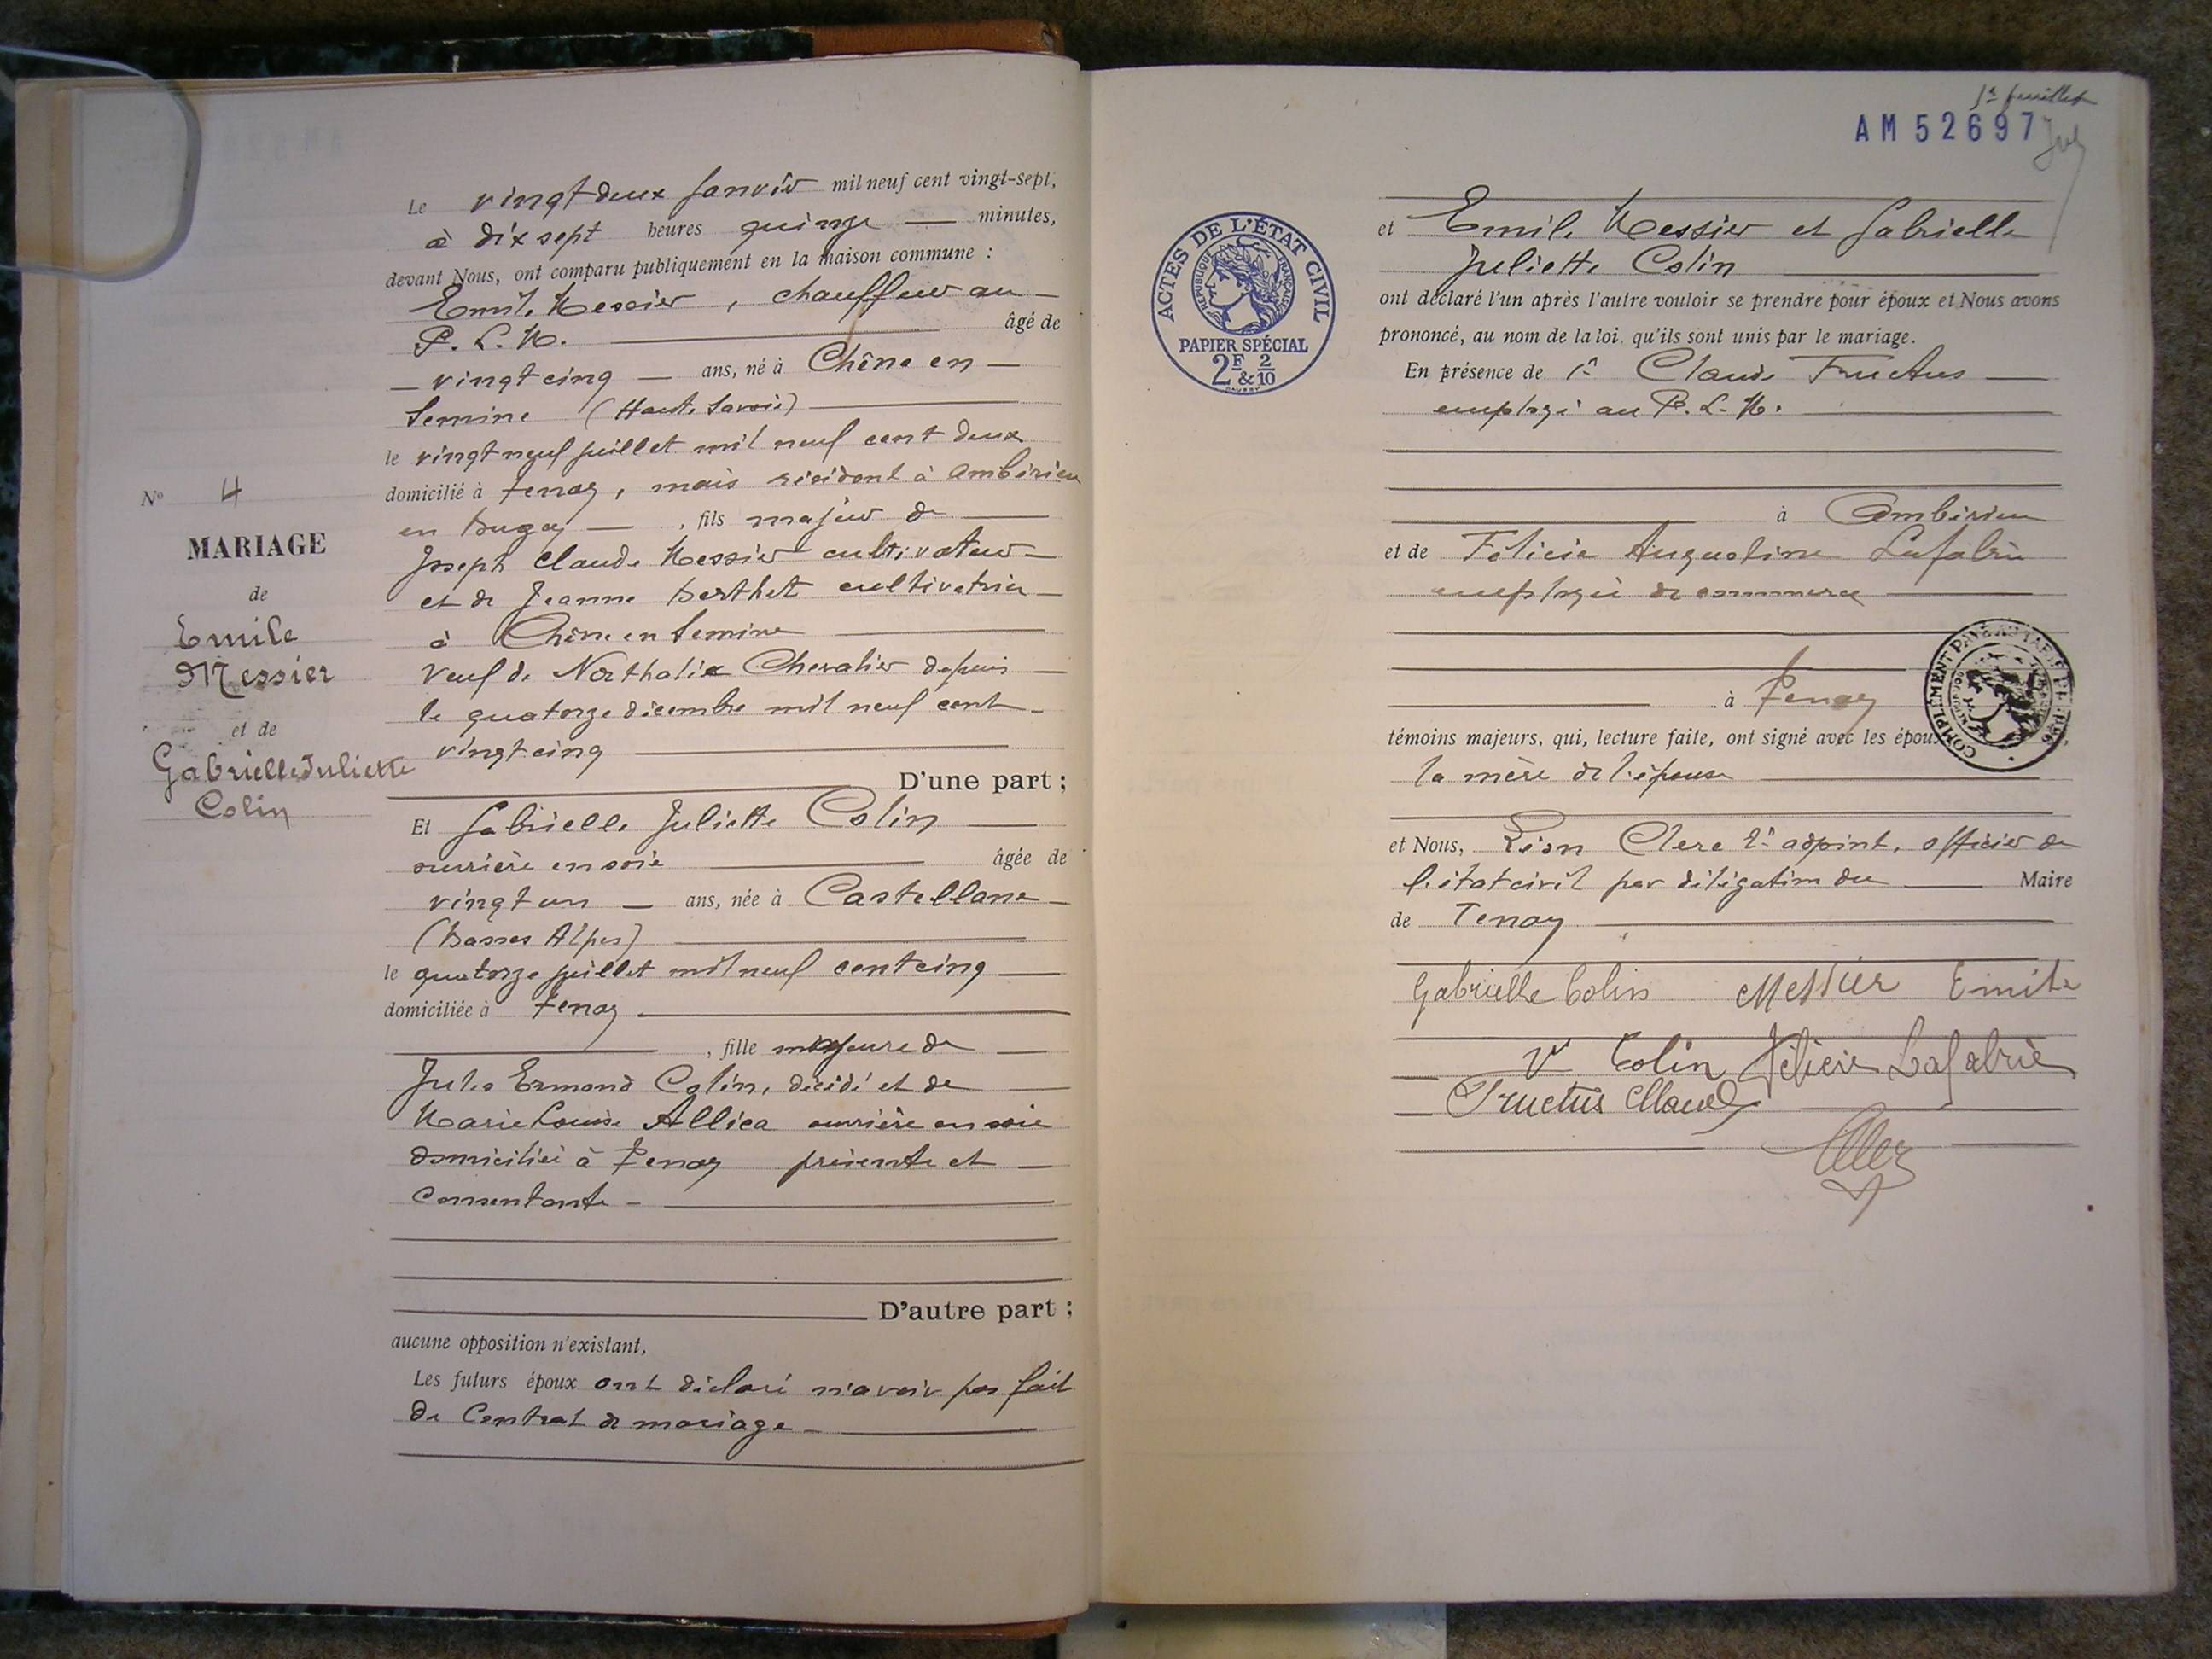 Le vingt deux Janvier mil neuf cent vingt-sept,
à dix sept heures quinze minutes,
devant Nous, ont comparu publiquement en la maison commune :
Emile Messier, chauffeur au
P. L. M. âgé de
vingt cinq ans, né à Chêne en
Semine (Haute Savoie)
le vingt neuf juillet mil neuf cent deux
domicilié à Tenay, mais résidant à Ambérieu
en Bugey, fils majeur de
Joseph Claude Messier cultivateur
et de Jeanne Berthet cultivatrice
à Chêne en Semine
Veuf de Nathalie Chevalier depuis
le quatorze décembre mil neuf cent
vingt cinq
D'une part ;
Nº 4
MARIAGE
de
Emile
Messier
et de
Gabrielle Juliette
Colin
Et Gabrielle Juliette Colin
ouvrière en soie âgée de
vingt un ans, née à Castellane
(Basses Alpes)
le quatorze juillet mil neuf cent cinq
domiciliée à Tenay
, fille majeure de
Jules Ermond Colin, décédé et de
Marie Louise Allica ouvrière en soie
domiciliée à Tenay présente et
consentante
D'autre part ;
aucune opposition n'existant,
Les futurs époux ont déclaré n'avoir pas fait
de Contrat de mariage
1er feuillet
AM 52697
ACTES DE L'ÉTAT CIVIL
RÉPUBLIQUE FRANÇAISE
PAPIER SPÉCIAL
2F & 2/10
et Emile Messier et Gabrielle
Juliette Colin
ont déclaré l'un après l'autre vouloir se prendre pour époux et Nous avons
prononcé, au nom de la loi, qu'ils sont unis par le mariage.
En présence de 1º Claude Fructus
employé au P. L. M.
à Ambérieu
et de Félicie Augustine Lafabrie
employée de commerce
à Tenay
COMPLÉMENT PAYÉ AU TARIF DE
témoins majeurs, qui, lecture faite, ont signé avec les épou
la mère de l'épouse
et Nous, Léon Clerc 2e adjoint, officier de
l'état civil par délégation du Maire
de Tenay
Gabrielle Colin Messier Emile
Vve Colin Félicie Lafabrie
Fructus Claude